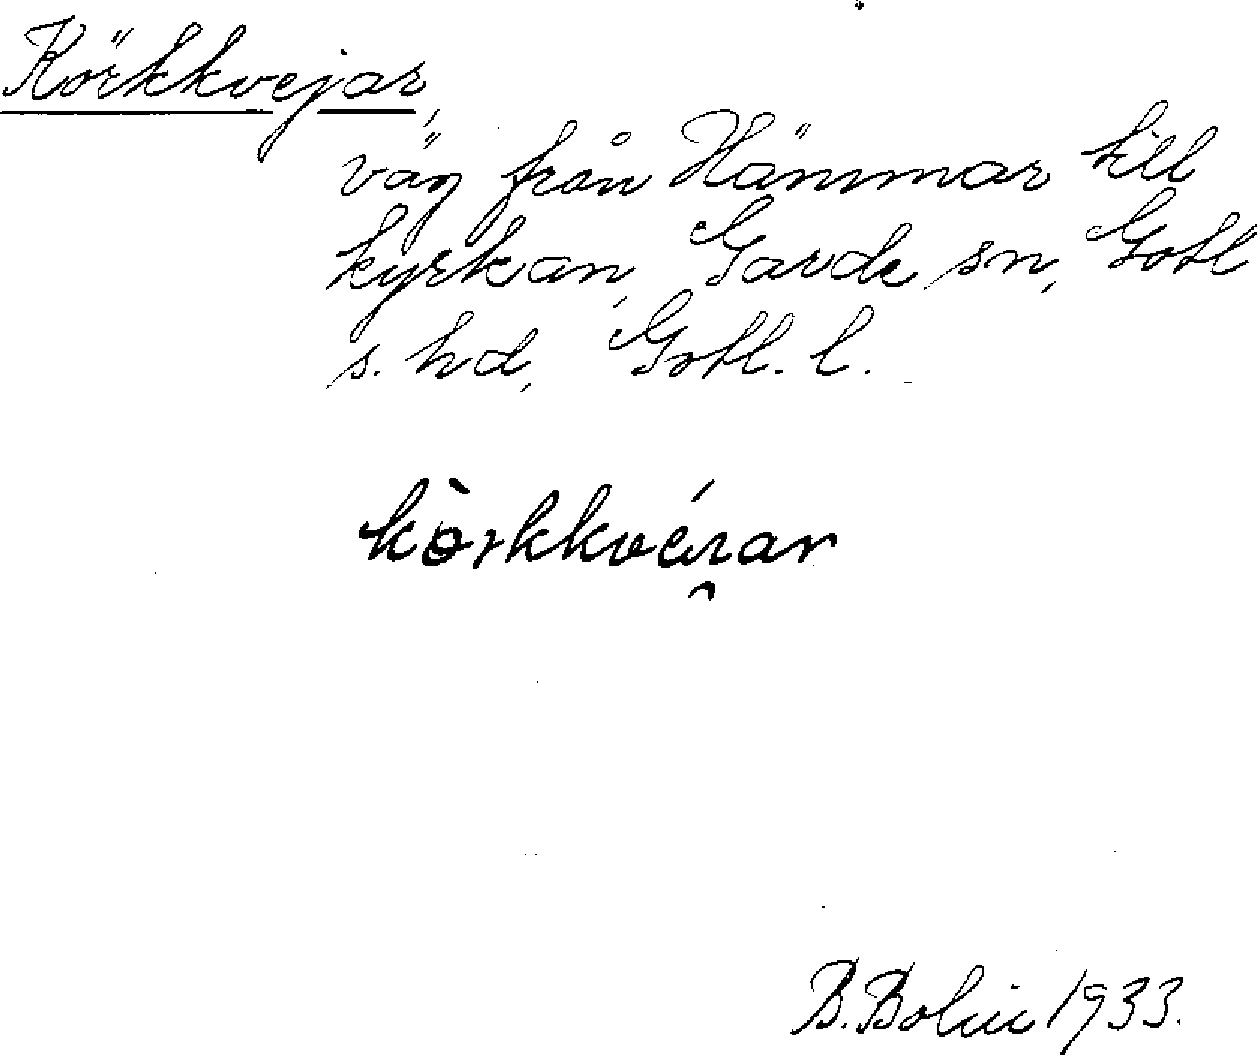 Körkkvejar,
väg från Hämmar till
kyrkan, Garde sn, Gotl
s. hd, Gotl. l.
B. Bolin 1933.